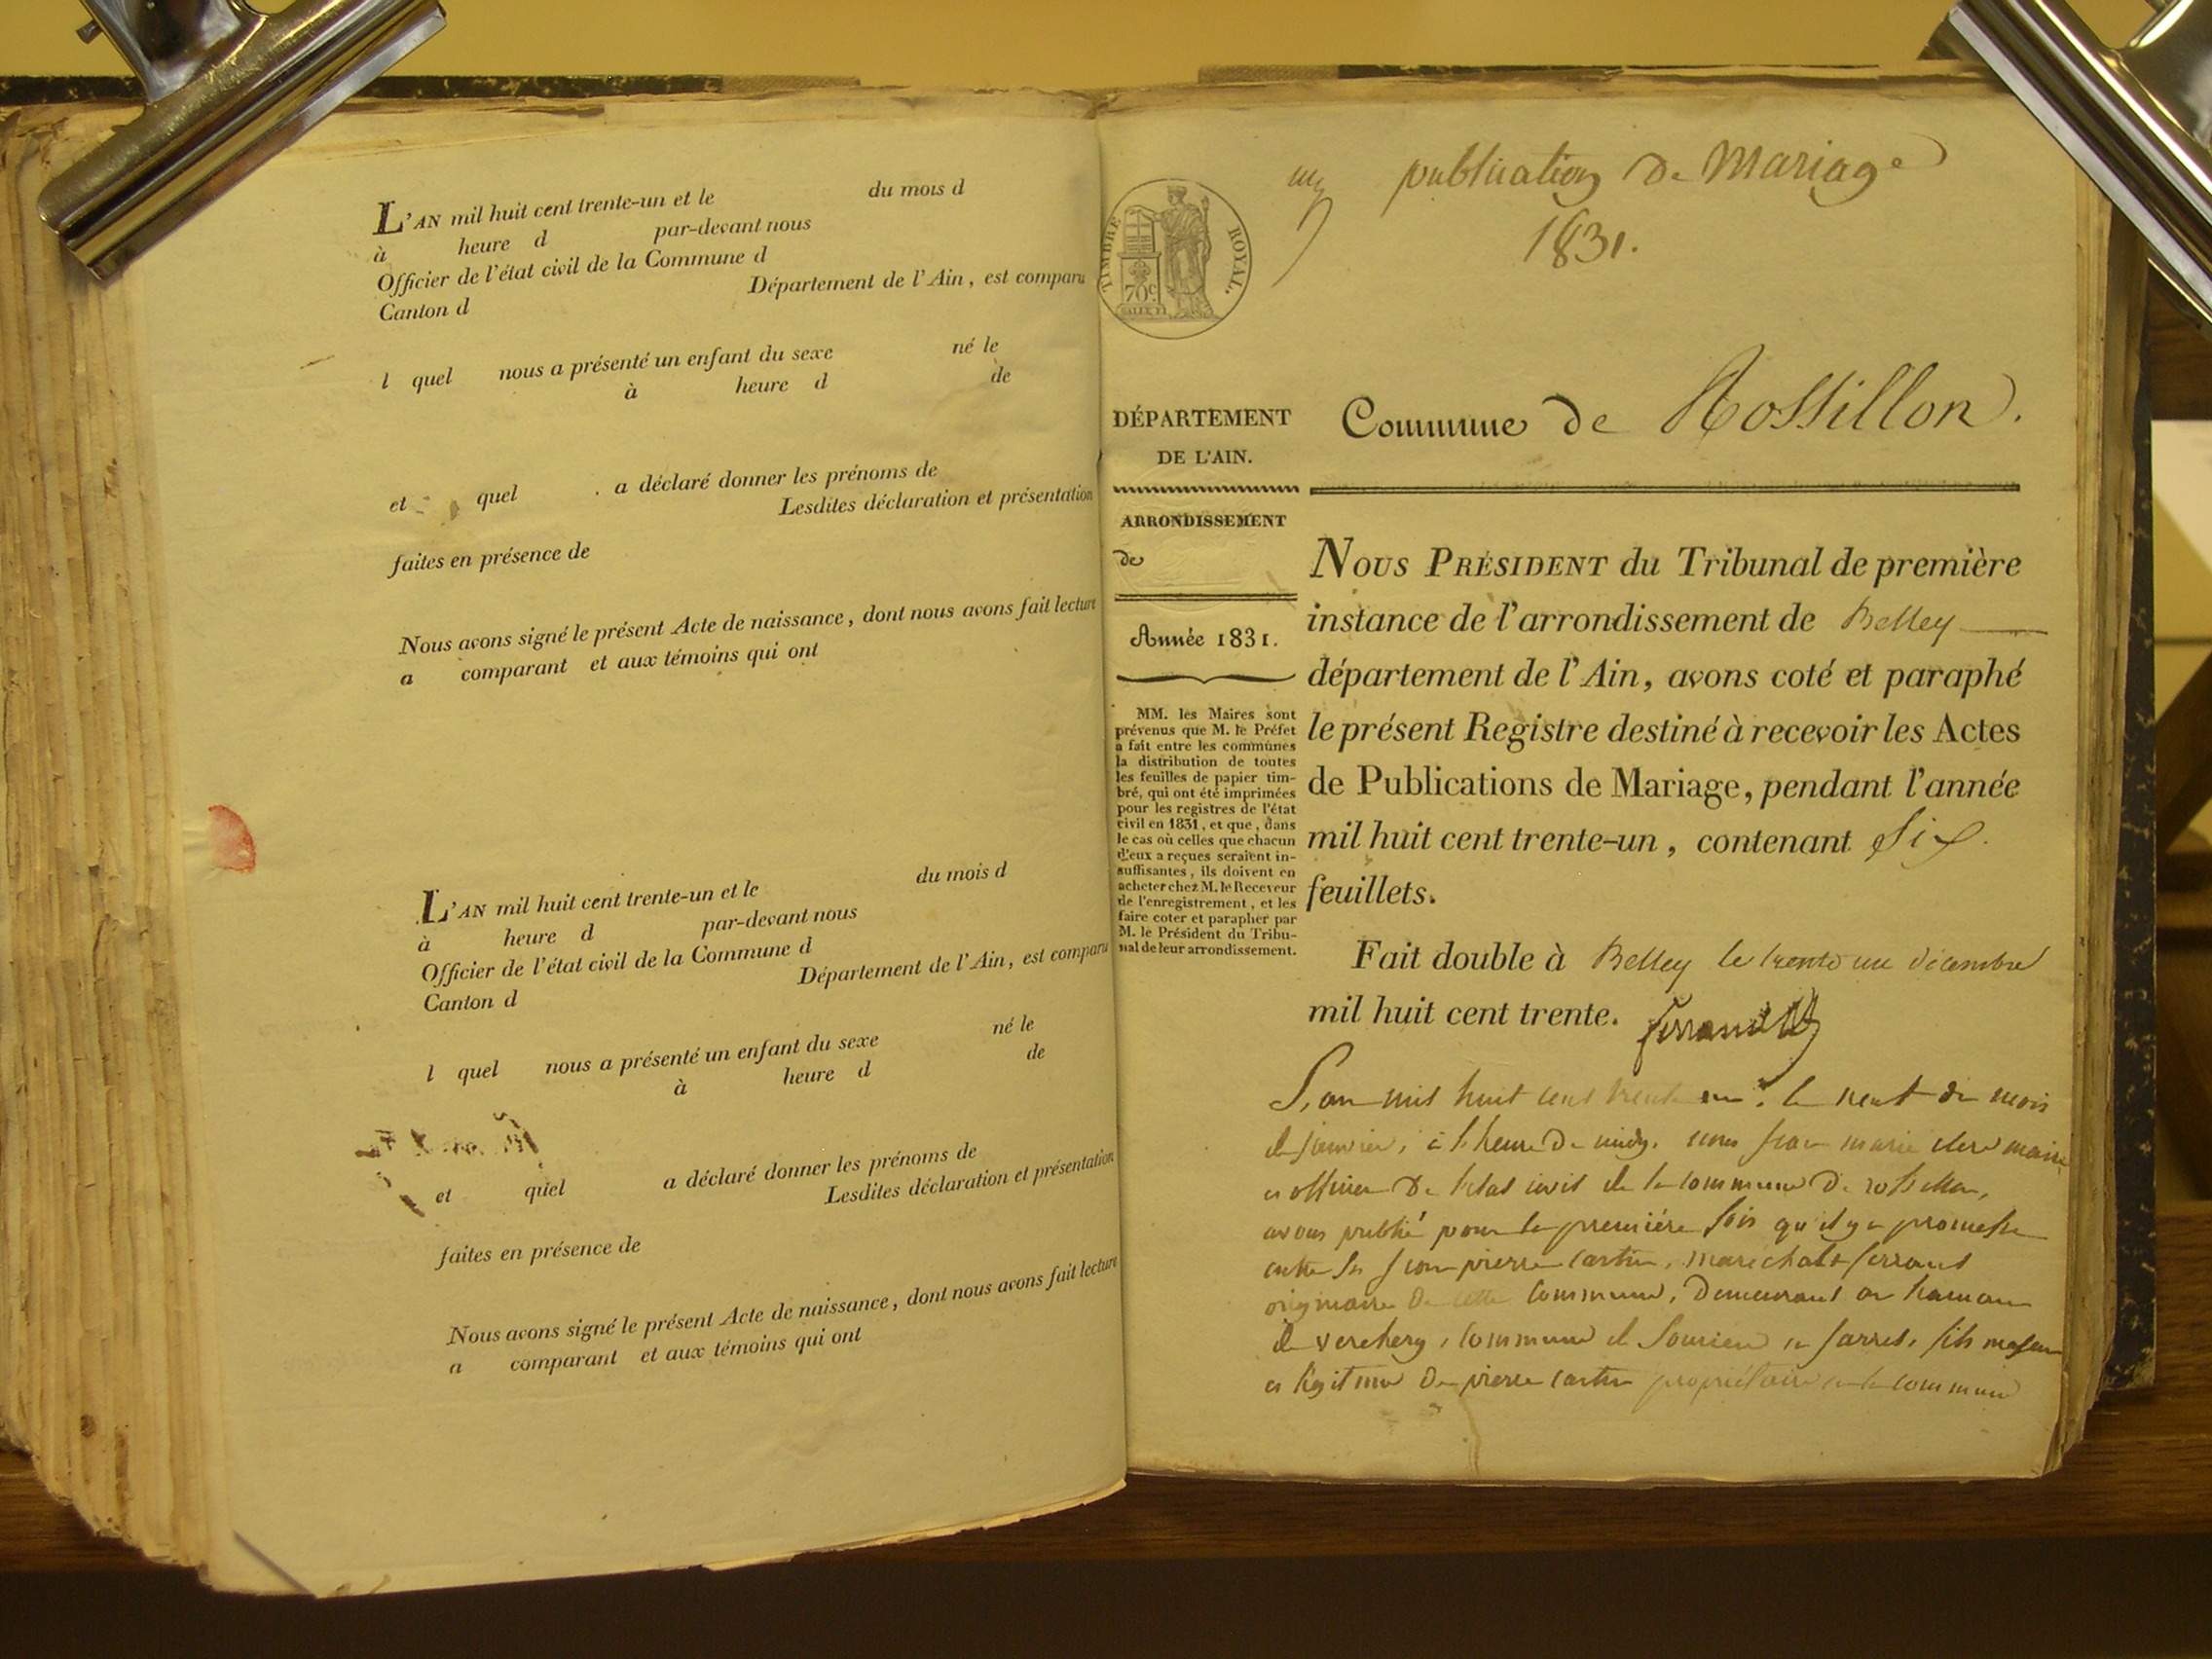 L'AN mil huit cent trente-un et le du mois d
à heure d par-devant nous
Officier de l'état civil de la Commune d
Canton d Département de l'Ain, est comparu
l quel nous a présenté un enfant du sexe né le
à heure d de
et quel a déclaré donner les prénoms de
Lesdites déclaration et présentation
faites en présence de
Nous avons signé le présent Acte de naissance, dont nous avons fait lecture
a comparant et aux témoins qui ont
L'AN mil huit cent trente-un et le du mois d
à heure d par-devant nous
Officier de l'état civil de la Commune d
Canton d Département de l'Ain, est comparu
l quel nous a présenté un enfant du sexe né le
à heure d de
et quel a déclaré donner les prénoms de
Lesdites déclaration et présentation
faites en présence de
Nous avons signé le présent Acte de naissance, dont nous avons fait lecture
a comparant et aux témoins qui ont
publication De Mariage
1831.
TIMBRE ROYAL.
70c
DÉPARTEMENT
DE L'AIN.
ARRONDISSEMENT
de
Année 1831.
MM. les Maires sont
prévenus que M. le Préfet
a fait entre les communes
la distribution de toutes
les feuilles de papier tim-
bré, qui ont été imprimées
pour les registres de l'état
civil en 1831, et que, dans
le cas où celles que chacun
d'eux a reçues seraient in-
suffisantes, ils doivent en
acheter chez M. le Receveur
de l'enregistrement, et les
faire coter et parapher par
M. le Président du Tribu-
nal de leur arrondissement.
Commune de Rossillon.
NOUS PRÉSIDENT du Tribunal de première
instance de l'arrondissement de Belley
département de l'Ain, avons coté et paraphé
le présent Registre destiné à recevoir les Actes
de Publications de Mariage, pendant l'année
mil huit cent trente-un, contenant Six
feuillets.
Fait double à Belley le trente un décembre
mil huit cent trente.
L'an mil huit cent trente un. le neuf du mois
de janvier, à l'heure De midy. nous maire
et officier De l'etat civil de la commune De rossillon,
avons publié pour la première fois qu'il y a promesse
entre pierre marechalt ferrant
originaire De cette Commune, Demeurant au hameau
de commune de fils majeur
et legitime De pierre propriétaire commune